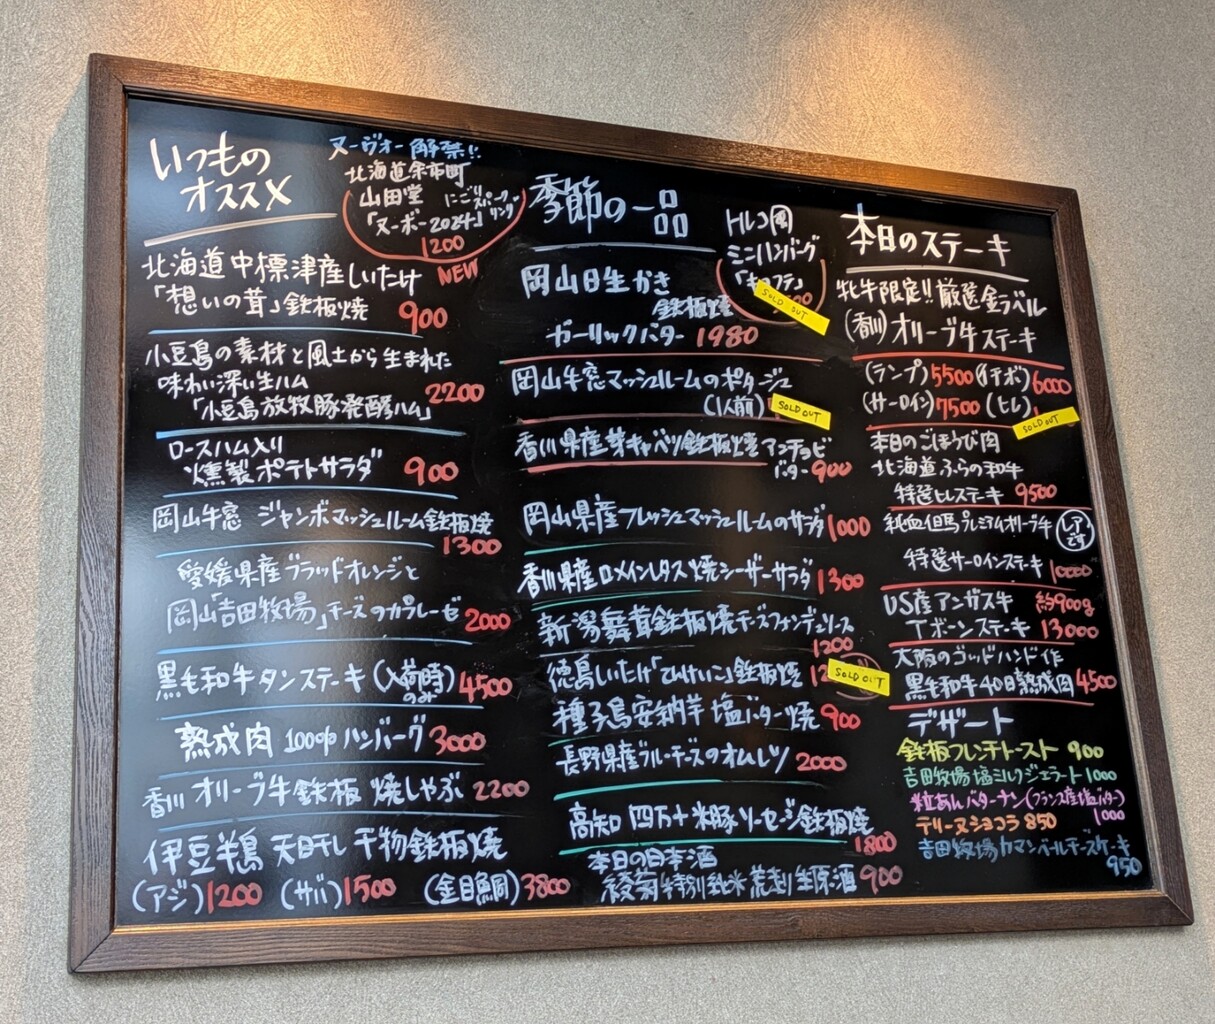 いつもの
オススメ
ヌーヴォー解禁!!
北海道余市町
山田堂 にごりスパークリング
「ヌーボー2024」
1200
NEW
北海道中標津産しいたけ
「想いの茸」鉄板焼 900
小豆島の素材と風土から生まれた
味わい深い生ハム
「小豆島放牧豚発酵ハム」 2200
ロースハム入り
燻製ポテトサラダ 900
岡山牛窓 ジャンボマッシュルーム鉄板焼
1300
愛媛県産ブラッドオレンジと
岡山「吉田牧場」チーズのカプレーゼ 2000
黒毛和牛タンステーキ(入荷時のみ) 4500
熟成肉 100%ハンバーグ 3000
香川 オリーブ牛鉄板 焼しゃぶ 2200
伊豆半島 天日干し干物鉄板焼
(アジ)1200 (サバ)1500 (金目鯛)3800
季節の一品
トルコ風
ミニハンバーグ
SOLD OUT
岡山日生かき
鉄板焼
ガーリックバター 1980
岡山牛窓マッシュルームのポタージュ
(1人前) SOLD OUT
香川県産芽キャベツ鉄板焼 アンチョビ
バター 900
岡山県産フレッシュマッシュルームのサラダ 1000
香川県産ロメインレタス焼シーザーサラダ 1300
新潟舞茸鉄板焼チーズフォンデュソース
1200
徳島しいたけ「てんけいこ」鉄板焼 SOLD OUT
種子島安納芋 塩バター焼 900
長野県産ブルーチーズのオムレツ 2000
高知 四万十米豚ソーセージ鉄板焼
1800
本日の日本酒
綾菊 特別純米 荒走り生原酒 900
本日のステーキ
牝牛限定!!厳選金ラベル
(香川)オリーブ牛ステーキ
(ランプ)5500 (イチボ)6000
(サーロイン)7500 (ヒレ) SOLD OUT
本日のごほうび肉
北海道ふらの和牛
特選ヒレステーキ 9500
純血但馬プレミアムオリーブ牛 レアです
特選サーロインステーキ 10000
US産アンガス牛 約900g
Tボーンステーキ 13000
大阪のゴッドハンド作
黒毛和牛40日熟成肉 4500
デザート
鉄板フレンチトースト 900
吉田牧場塩ミルクジェラート 1000
粒あんバターナン(フランス産塩バター)
1000
テリーヌショコラ 850
吉田牧場カマンベールチーズケーキ
950